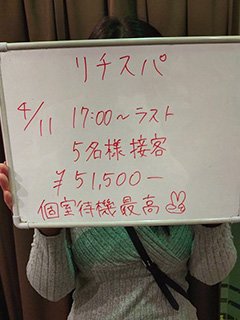 リチスパ
4/11 17:00～ラスト
5名様接客
¥51,500-
個室待機最高